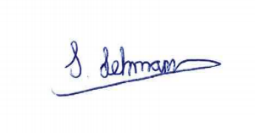 S. Lehmann